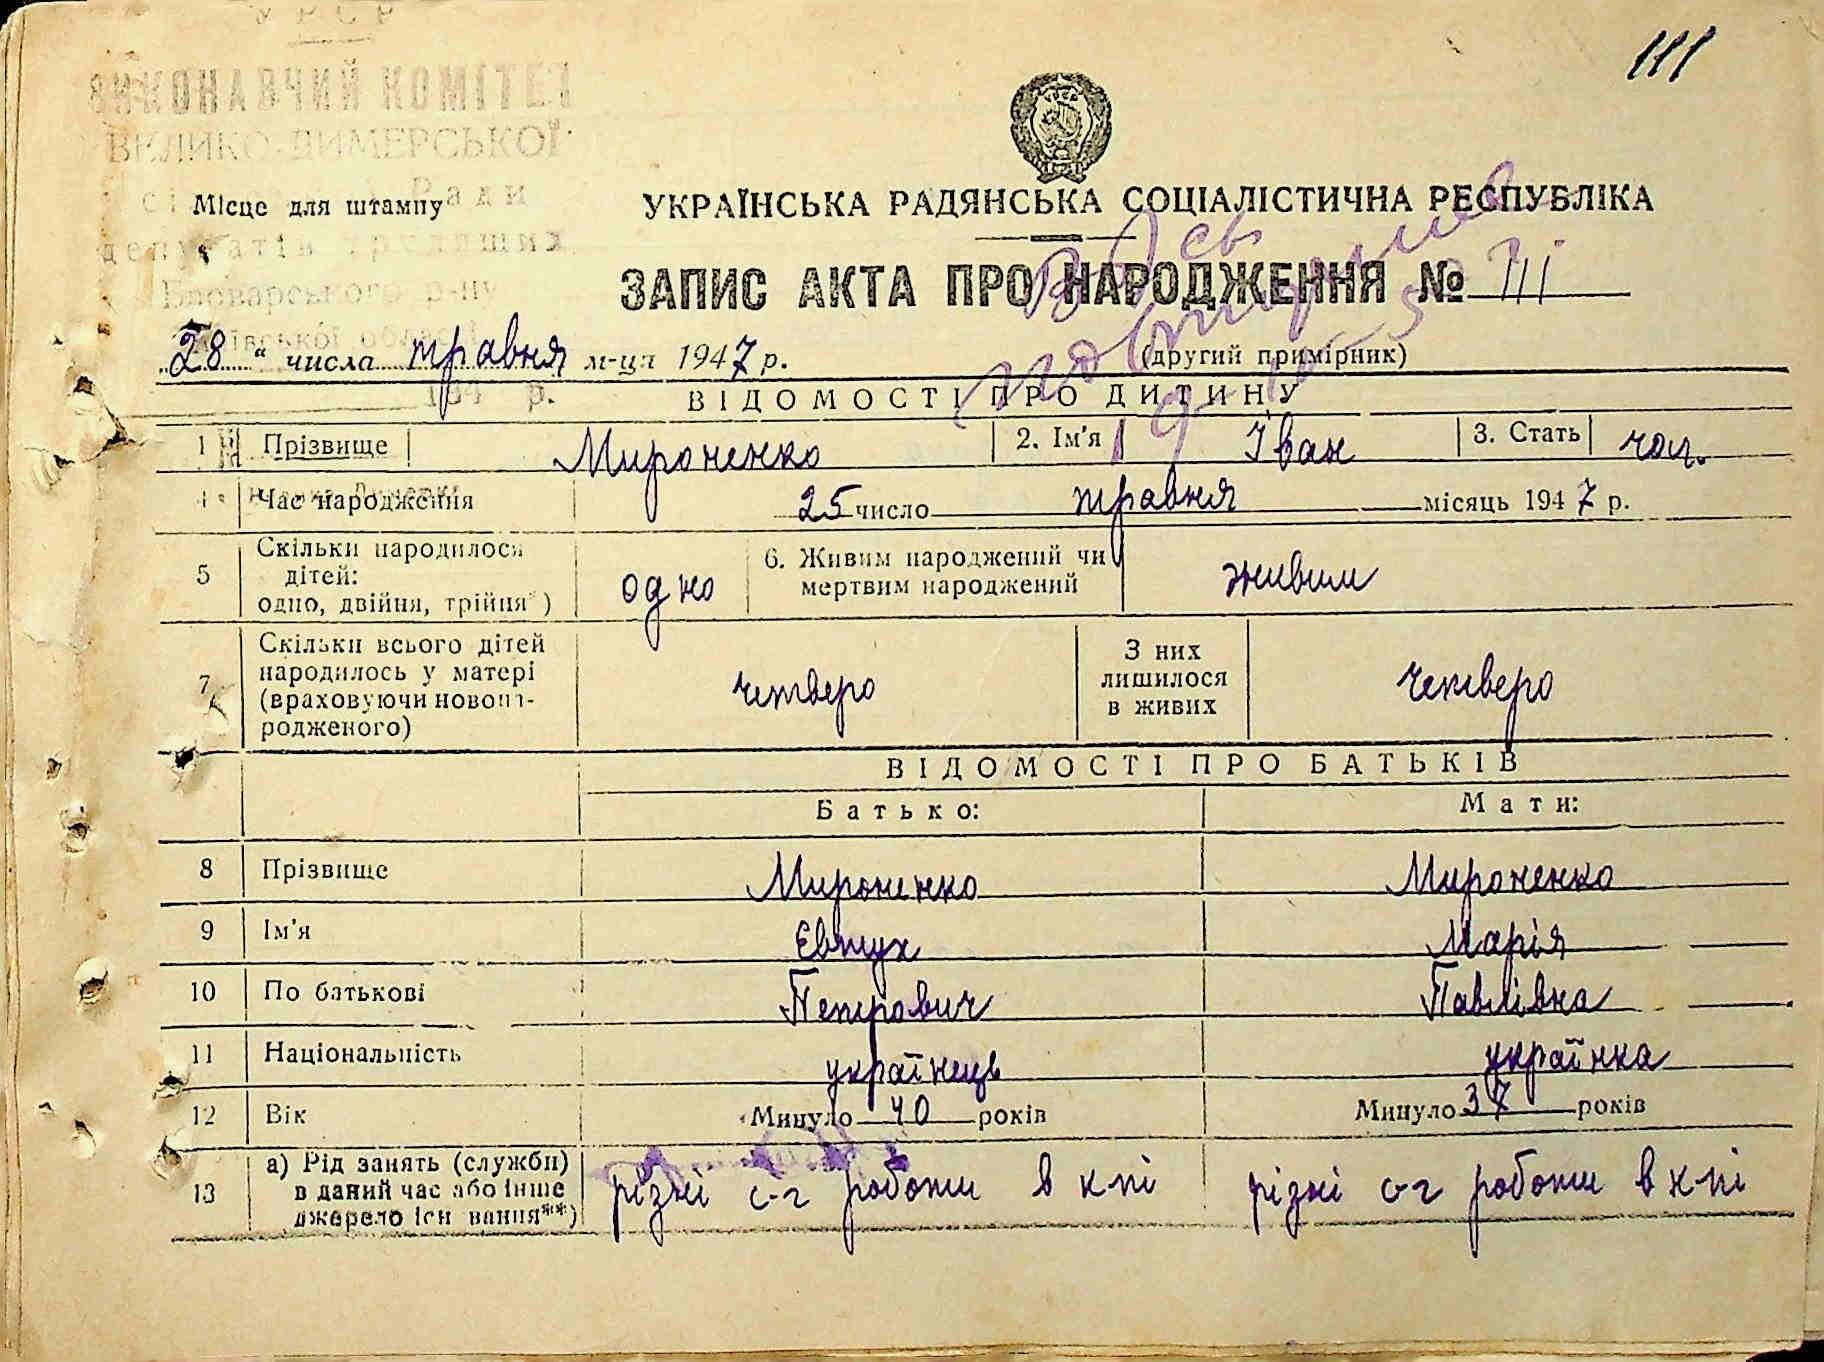 УРСР
111
ВИКОНАВЧИЙ КОМІТЕТ
ВЕЛИКО-ДИМЕРСЬКОЇ
сі Ради
Місце для штампу
депутатів трудящих
Броварського р-ну
Київської області
194 р.
УКРАЇНСЬКА РАДЯНСЬКА СОЦІАЛІСТИЧНА РЕСПУБЛІКА
ЗАПИС АКТА ПРО НАРОДЖЕННЯ № 111
„28“ числа травня м-ця 1947 р.
(другий примірник)
ВІДОМОСТІ ПРО ДИТИНУ
1 Прізвище Мироненко 2. Ім'я Іван 3. Стать чол.
4 Час народження 25 число травня місяць 1947 р.
5 Скільки народилося дітей: одно, двійня, трійня*) одно 6. Живим народжений чи мертвим народжений живим
7 Скільки всього дітей народилось у матері (враховуючи новонародженого) четверо З них лишилося в живих четверо
ВІДОМОСТІ ПРО БАТЬКІВ
Батько: Мати:
8 Прізвище Мироненко Мироненко
9 Ім'я Євтух Марія
10 По батькові Петрович Павлівна
11 Національність українець українка
12 Вік Минуло 40 років Минуло 37 років
13 а) Рід занять (служби) в даний час або інше джерело існування**) різні с-г роботи в к-пі різні с-г роботи в к-пі